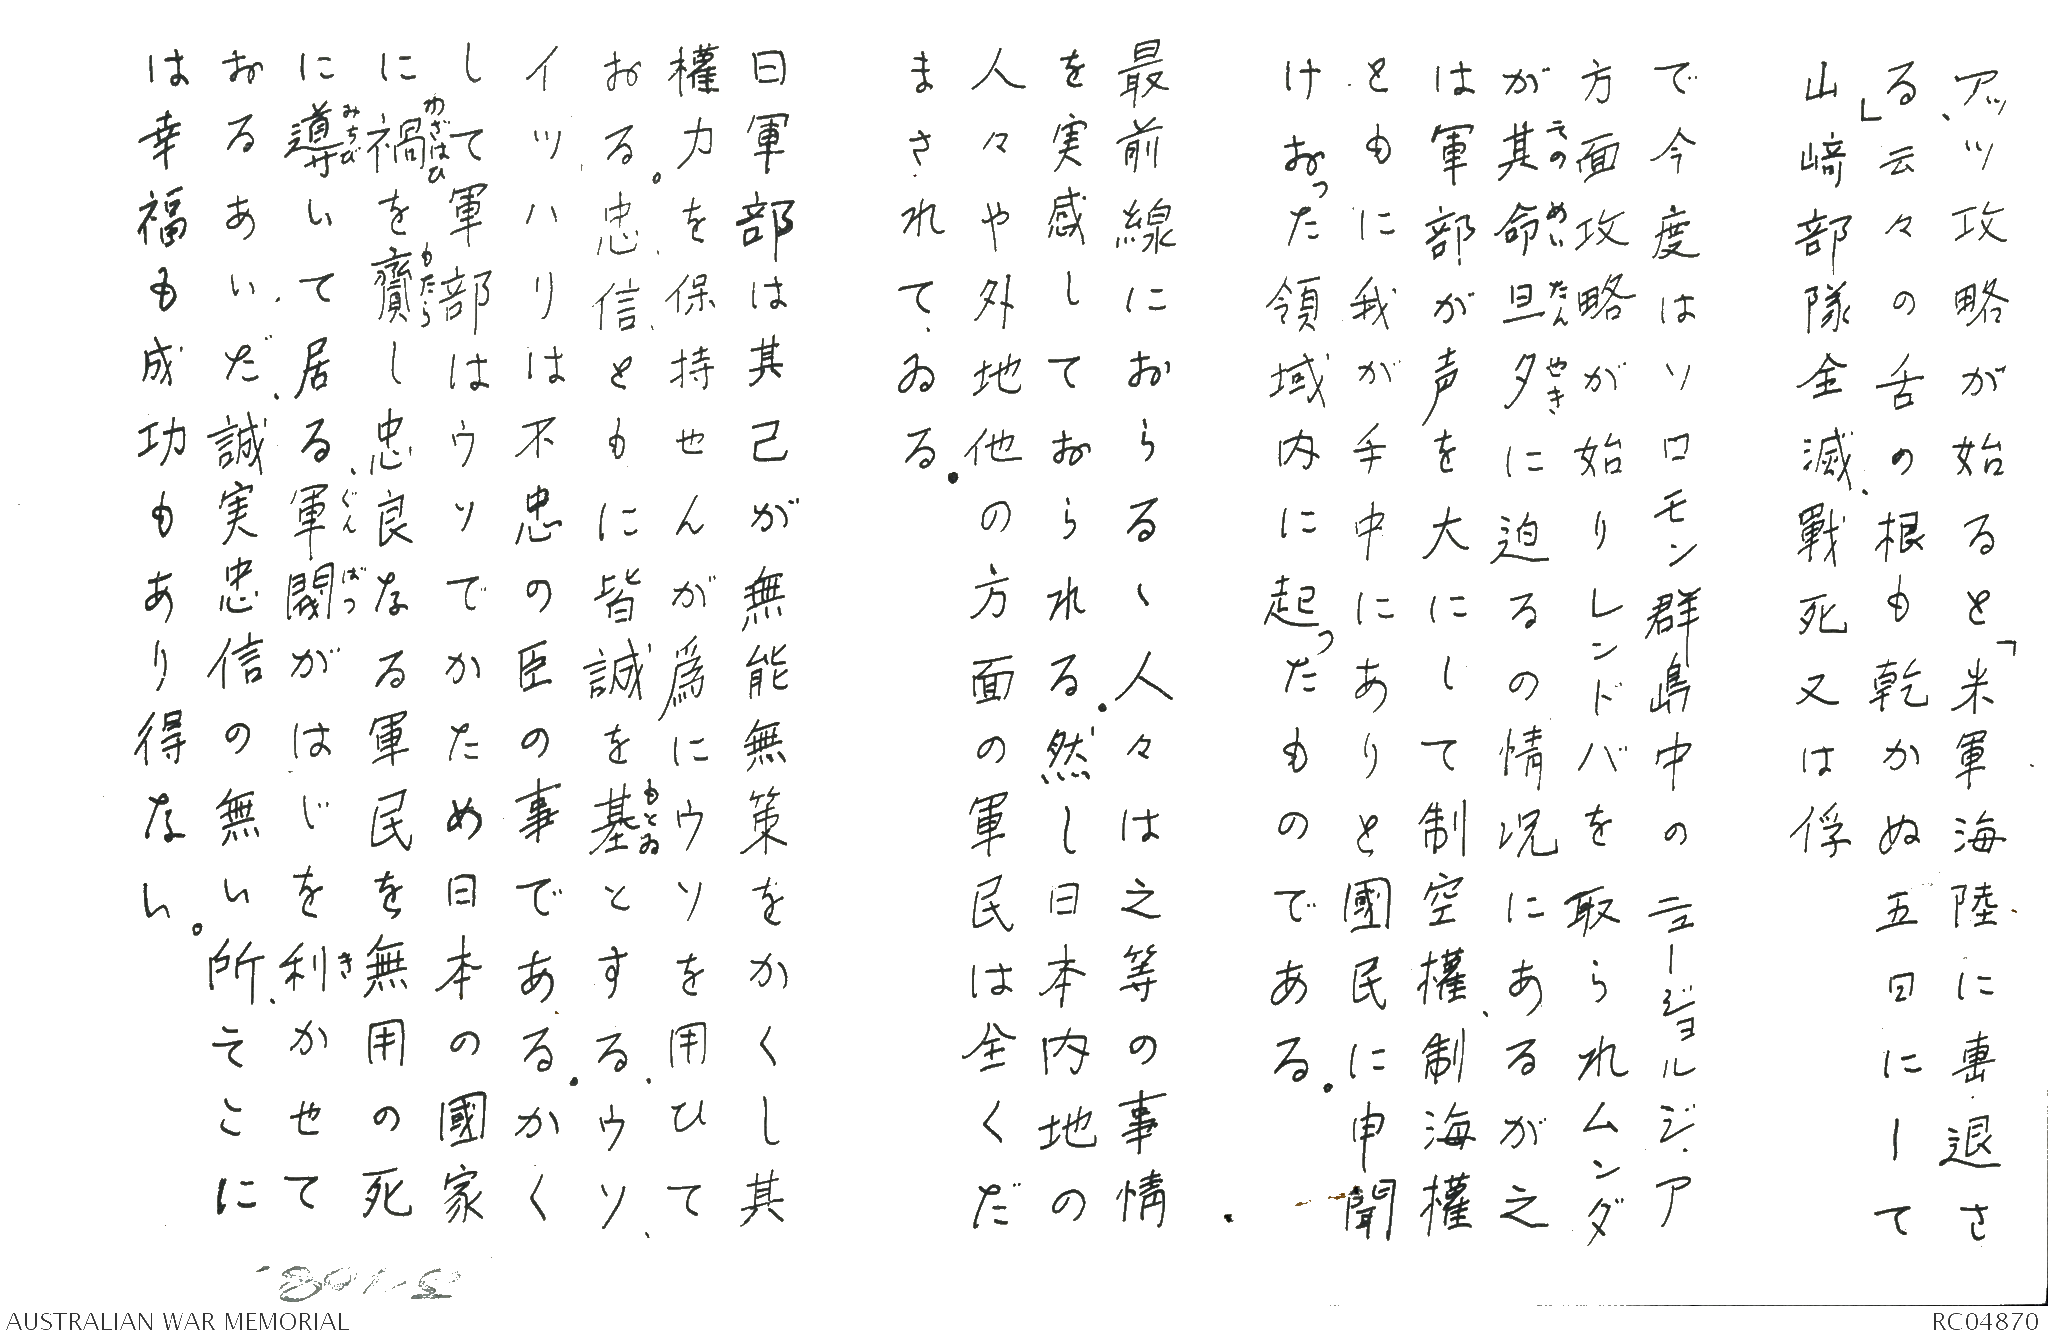 アッツ攻略が始ると「米軍海陸に専退さ
る、」云々の舌の根も乾かぬ五日にーて
山﨑部隊全滅、戰死又は俘
で今度はソロモン群島中のニュージョルジ、ア
方面攻略が始りレンドバを取られムンダ
が其その命めい旦たん夕やきに迫るの情況にあるが之
は軍部が声を大にして制空權、制海權
ともに我が手中にありと國民に申聞
けおった領域内に起ったものである。
最前線におらるゝ人々は之等の事情
を実感しておられる。然し日本内地の
人々や外地他の方面の軍民は全くだ
まされて、ゐる。
日軍部は其己が無能無策をかくし其
權力を保持せんが爲にウソを用ひて
おる。忠、信、ともに皆誠を基もとゐとする、ウソ、
イツハリは不忠の臣の事である。かく
して軍部はウソでかため日本の國家
に禍わざはひを齎もたらし忠良なる軍民を無用の死
に導みちびいて居る、軍ぐん閥ばつがはじを利きかせて
おるあいだ、誠実忠信の無い所、そこに
は幸福も成功もあり得ない。
5-108
AUSTRALIAN WAR MEMORIAL
RC04870